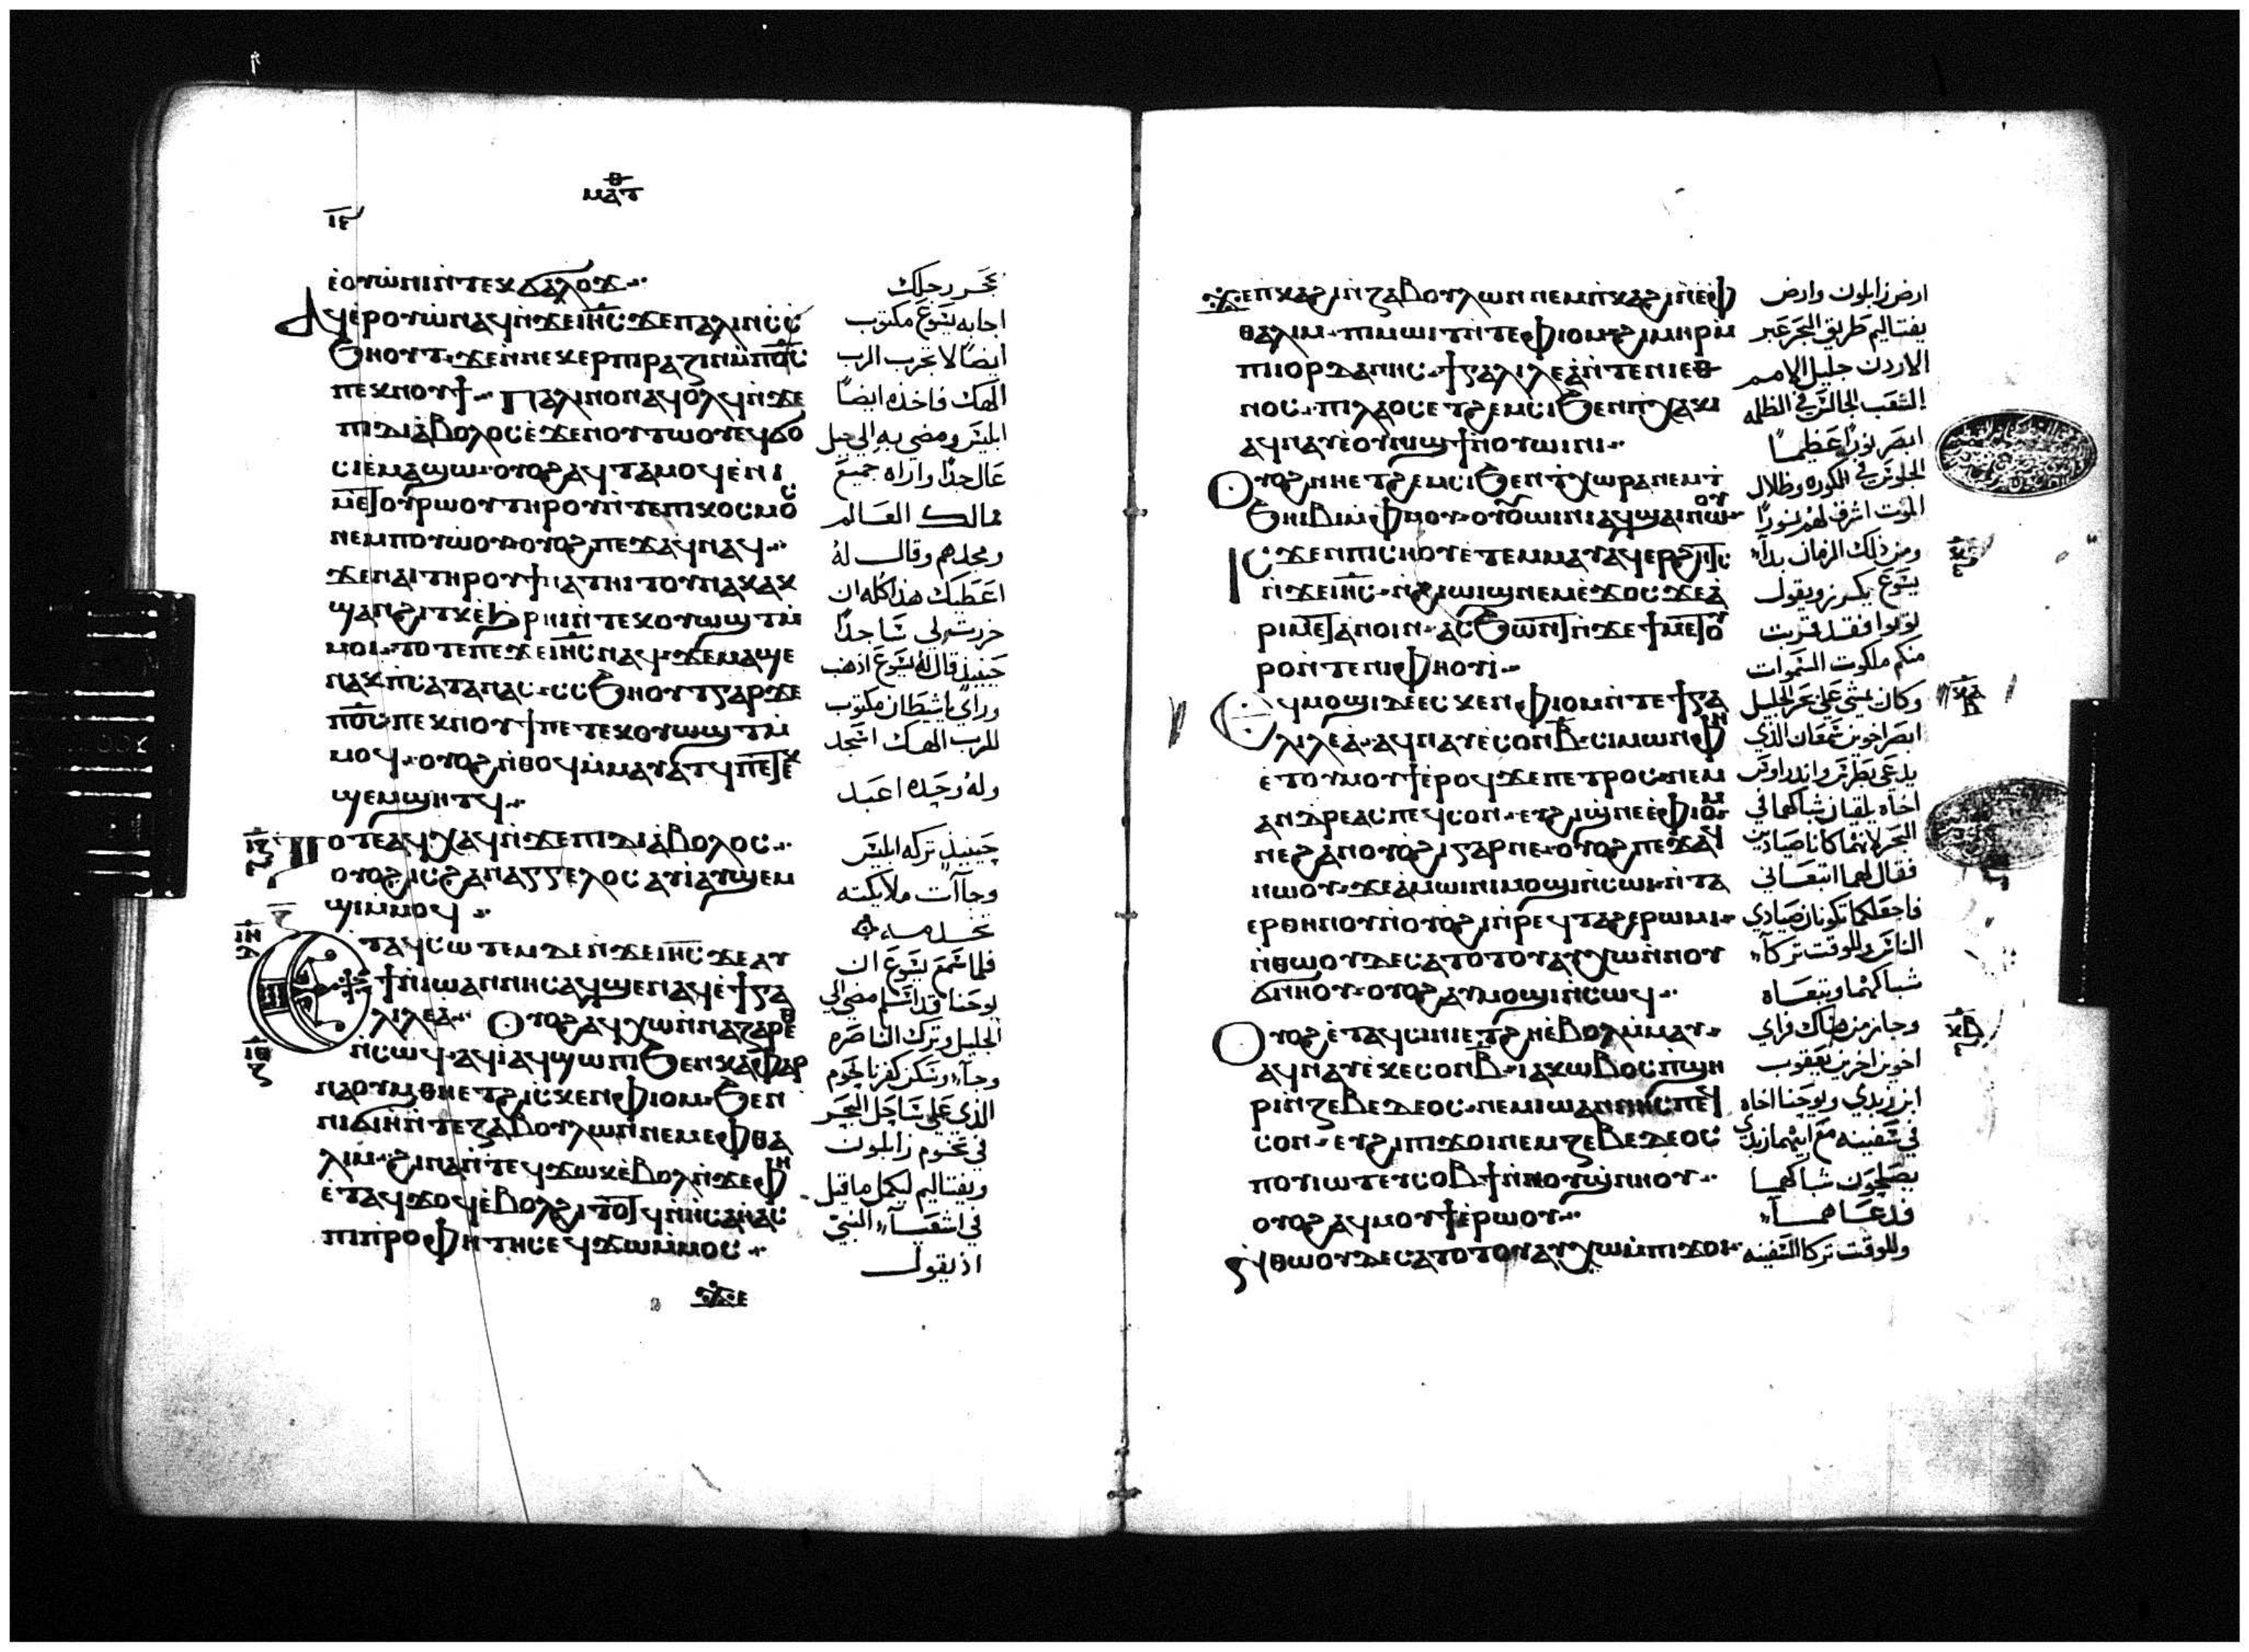 ⲙⲁⲧ
ⲓⲉ
ⲉⲟⲩⲱⲛⲓ ⲛⲧⲉⲕϭⲁⲗⲟϫ
ⲁϥⲉⲣⲟⲩⲱ ⲛⲁϥ ⲛϫⲉ ⲓⲏⲥ ϫⲉ ⲡⲁⲗⲓⲛ ⲥⲥ
ϧⲏⲟⲩⲧ ϫⲉ ⲛⲛⲉⲕⲉⲣⲡⲓⲣⲁⲍⲓⲛ ⲙⲡⲟⲥ
ⲡⲉⲕⲛⲟⲩϯ ⲡⲁⲗⲓⲛ ⲟⲛ ⲁϥⲟⲗϥ ⲛϫⲉ
ⲡⲓⲇⲓⲁⲃⲟⲗⲟⲥ ⲉϫⲉⲛ ⲟⲩⲧⲱⲟⲩ ⲉϥϭⲟ
ⲥⲓ ⲉⲙⲁϣⲱ ⲟⲩⲟϩ ⲁϥⲧⲁⲙⲟϥ ⲉⲛⲓ
ⲙⲉⲧⲟⲩⲣⲱⲟⲩ ⲧⲏⲣⲟⲩ ⲛⲧⲉ ⲡⲓⲕⲟⲥⲙⲟⲥ
ⲛⲉⲙ ⲡⲟⲩⲱⲟⲩ ⲟⲩⲟϩ ⲡⲉϫⲁϥ ⲛⲁϥ
ϫⲉ ⲛⲁⲓ ⲧⲏⲣⲟⲩ ϯⲛⲁⲧⲏⲓⲧⲟⲩ ⲛⲁⲕ ⲁⲕ
ϣⲁⲛϩⲓⲧⲕ ⲉϧⲣⲏⲓ ⲛⲧⲉⲕⲟⲩⲱϣⲧ ⲙ
ⲙⲟⲓ ⲧⲟⲧⲉ ⲡⲉϫⲉ ⲓⲏⲥ ⲛⲁϥ ϫⲉ ⲙⲁϣⲉ
ⲛⲁⲕ ⲡⲥⲁⲧⲁⲛⲁⲥ ⲥⲥϧⲏⲟⲩⲧ ⲅⲁⲣ ϫⲉ
ⲡⲟⲥ ⲡⲉⲕⲛⲟⲩϯ ⲡⲉⲧⲉⲕⲟⲩⲱϣⲧ ⲙ
ⲙⲟϥ ⲟⲩⲟϩ ⲛⲑⲟϥ ⲙⲙⲁⲩⲁⲧϥ ⲡⲉⲧⲉⲕ
ϣⲉⲙϣⲏⲧϥ
ⲓⲍ ⲧⲟⲧⲉ ⲁϥⲭⲁϥ ⲛϫⲉ ⲡⲓⲇⲓⲁⲃⲟⲗⲟⲥ
ⲟⲩⲟϩ ⲓⲥ ϩⲁⲛⲁⲅⲅⲉⲗⲟⲥ ⲁⲩⲓ ⲁⲩϣⲉⲙ
ϣⲓ ⲙⲙⲟϥ
ⲓⲏ ⲉⲧⲁϥⲥⲱⲧⲉⲙ ⲇⲉ ⲛϫⲉ ⲓⲏⲥ ϫⲉ ⲁⲩ
ϯ ⲛⲓⲱⲁⲛⲛⲏⲥ ⲁϥϣⲉⲛⲁϥ ⲉϯⲅⲁ
ⲗⲓⲗⲉⲁ ⲟⲩⲟϩ ⲁϥⲭⲱ ⲛⲛⲁⲍⲁⲣⲉⲑ
ⲓⲑ ⲛⲥⲱϥ ⲁϥⲓ ⲁϥϣⲱⲡⲓ ϧⲉⲛ ⲕⲁⲫⲁⲣ
ⲛⲁⲟⲩⲙ ⲑⲏⲉⲧϩⲓⲥⲕⲉⲛ ⲫⲓⲟⲙ ϧⲉⲛ
ⲛⲓϭⲓⲏ ⲛⲧⲉ ⲍⲁⲃⲟⲩⲗⲱⲛ ⲛⲉⲙ ⲉⲫⲑⲁ
ⲗⲓⲙ ϩⲓⲛⲁ ⲛⲧⲉϥϫⲱⲕ ⲉⲃⲟⲗ ⲛϫⲉ ⲫⲏ
ⲉⲧⲁϥϫⲟϥ ⲉⲃⲟⲗϩⲓⲧⲟⲧϥ ⲛⲏⲥⲁⲏⲁⲥ
ⲡⲓⲡⲣⲟⲫⲏⲧⲏⲥ ⲉϥϫⲱⲙⲙⲟⲥ
ϫⲉ
بحجر رجلك
اجابه يسوع مكتوب
ايضًا لا تجرب الرب
الهك فاخذه ايضًا
ابليس ومضى به الى جبل
عال جدًا واراه جميع
ممالك العالم
ومجدهم وقال له
اعطيك هذا كله ان
خررت لي ساجدًا
حينيذ قال له يسوع اذهب
وراي ياشيطان مكتوب
للرب الهك اسجد
وله وحده اعبد
حينيذ تركه ابليس
وجاآت ملايكته
تخدمه
فلما سمع يسوع ان
يوحنا قد اسلم مضى الى
الجليل وترك الناصره
وجآء وسكن كفرناحوم
الذي على ساحل البحر
في تخوم زابلون
ويفتاليم ليكمل ما قيل
في اشعيآء النبي
اذ يقول
ϫⲉ ⲡⲕⲁϩⲓ ⲛⲍⲁⲃⲟⲩⲗⲱⲛ ⲛⲉⲙ ⲡⲕⲁϩⲓ ⲛⲉⲫ
ⲑⲁⲗⲓⲙ ⲡⲓⲙⲱⲓⲧ ⲛⲧⲉ ⲫⲓⲟⲙ ϩⲓⲙⲏⲣ ⲙ
ⲡⲓⲓⲟⲣⲇⲁⲛⲏⲥ ϯⲅⲁⲗⲓⲗⲉⲁ ⲛⲧⲉ ⲛⲓⲉⲑ
ⲛⲟⲥ ⲡⲓⲗⲁⲟⲥ ⲉⲧϩⲉⲙⲥⲓ ϧⲉⲛ ⲡⲭⲁⲕⲓ
ⲁϥⲛⲁⲩ ⲉⲟⲩⲛⲓϣϯ ⲛⲟⲩⲱⲓⲛⲓ
ⲟⲩⲟϩ ⲛⲏⲉⲧϩⲉⲙⲥⲓ ϧⲉⲛ ⲧⲭⲱⲣⲁ ⲛⲉⲙ ⲧ
ϧⲏⲓⲃⲓ ⲙⲫⲙⲟⲩ ⲟⲩⲟⲩⲱⲓⲛⲓ ⲁϥϣⲁⲓ ⲛⲱⲟⲩ
ⲓⲥϫⲉⲛ ⲡⲓⲥⲏⲟⲩ ⲉⲧⲉⲙⲙⲁⲩ ⲁϥⲉⲣϩⲏⲧⲥ
ⲛϫⲉ ⲓⲏⲥ ⲛϩⲓⲱⲓϣ ⲛⲉⲙ ⲉϫⲟⲥ ϫⲉ ⲁ
ⲣⲓⲙⲉⲧⲁⲛⲟⲓⲛ ⲁⲥϧⲱⲛⲧ ⲛϫⲉ ϯⲙⲉⲧⲟⲩ
ⲣⲟ ⲛⲧⲉ ⲛⲓⲫⲏⲟⲩⲓ
ⲉϥⲙⲟϣⲓ ⲇⲉ ⲉⲥⲕⲉⲛ ⲫⲓⲟⲙ ⲛⲧⲉ ϯⲅⲁ
ⲗⲓⲗⲉⲁ ⲁϥⲛⲁⲩ ⲉⲥⲟⲛ ⲃ ⲥⲓⲙⲱⲛ ⲫⲏ
ⲉⲧⲟⲩⲙⲟⲩϯ ⲉⲣⲟϥ ϫⲉ ⲡⲉⲧⲣⲟⲥ ⲛⲉⲙ
ⲁⲛⲇⲣⲉⲁⲥ ⲡⲉϥⲥⲟⲛ ⲉⲩϩⲓϣⲛⲉ ⲉⲫⲓⲟⲙ
ⲛⲉ ϩⲁⲛⲟⲩⲟϩⲓ ⲅⲁⲣ ⲛⲉ ⲟⲩⲟϩ ⲡⲉϫⲁϥ
ⲛⲱⲟⲩ ϫⲉ ⲁⲙⲱⲓⲛⲓ ⲙⲟϣⲓ ⲛⲥⲱⲓ ⲛⲧⲁ
ⲉⲣⲑⲏⲛⲟⲩ ⲛⲟⲩⲟϩⲓ ⲛⲣⲉϥⲧⲁϩⲉⲣⲱⲙⲓ
ⲛⲑⲱⲟⲩ ⲇⲉ ⲥⲁⲧⲟⲧⲟⲩ ⲁⲩⲭⲱ ⲛⲛⲟⲩ
ϣⲛⲏⲟⲩ ⲟⲩⲟϩ ⲁⲩⲙⲟϣⲓ ⲛⲥⲱϥ
ⲟⲩⲟϩ ⲉⲧⲁϥⲥⲓⲛⲓ ⲉⲧϩⲏ ⲉⲃⲟⲗ ⲙⲙⲁⲩ
ⲁϥⲛⲁⲩ ⲉⲕⲉⲥⲟⲛ ⲃ ⲓⲁⲕⲱⲃⲟⲥ ⲡϣⲏ
ⲣⲓ ⲛⲍⲉⲃⲉⲇⲉⲟⲥ ⲛⲉⲙ ⲓⲱⲁⲛⲛⲏⲥ ⲡⲉϥ
ⲥⲟⲛ ⲉⲩϩⲓ ⲡⲓϫⲟⲓ ⲛⲉⲙ ⲍⲉⲃⲉⲇⲉⲟⲥ
ⲡⲟⲩⲓⲱⲧ ⲉⲩⲥⲟⲃϯ ⲛⲛⲟⲩϣⲛⲏⲟⲩ
ⲟⲩⲟϩ ⲁϥⲙⲟⲩϯ ⲉⲣⲱⲟⲩ
ⲛⲑⲱⲟⲩ ⲇⲉ ⲥⲁⲧⲟⲧⲟⲩ ⲁⲩⲭⲱ ⲙⲡⲓϫⲟⲓ
ارض زابلون وارض
يفتاليم طريق البحر عبر
الاردن جليل الامم
الشعب الجالس في الظلمه
ابصر نورًا عظيمًا
الجلوس في الكوره وظلال
الموت اشرق لهم نورًا
ومن ذلك الزمان بدآء
يسوع يكرز ويقول
توبوا فقد قربت
منكم ملكوت السموات
وكان يمشي على بحر الجليل
ابصر اخوين سمعان الذي
يدعى بطرس واندراوس
اخاه يلقيان شباكهما في
البحر لانهما كانا صيادين
فقال لهما اتبعاني
فاجعلكما تكونان صيادي
الناس وللوقت تركآء
شباكهما وتبعاه
وجاز من هناك فراي
اخوين اخرين يعقوب
ابن زبدي ويوحنا اخاه
في سفينه مع ابيهما زبدي
يصلحون شباكهما
فدعاهمآء
وللوقت تركا السفينه